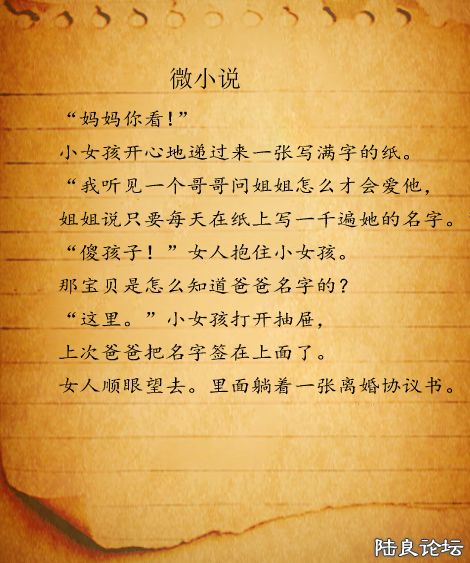 微小说
“妈妈你看!”
小女孩开心地递过来一张写满字的纸。
“我听见一个哥哥问姐姐怎么才会爱他,
姐姐说只要每天在纸上写一千遍她的名字。
“傻孩子!”女人抱住小女孩。
那宝贝是怎么知道爸爸名字的?
“这里。”小女孩打开抽屉,
上次爸爸把名字签在上面了。
女人顺眼望去。里面躺着一张离婚协议书。
陆良论坛